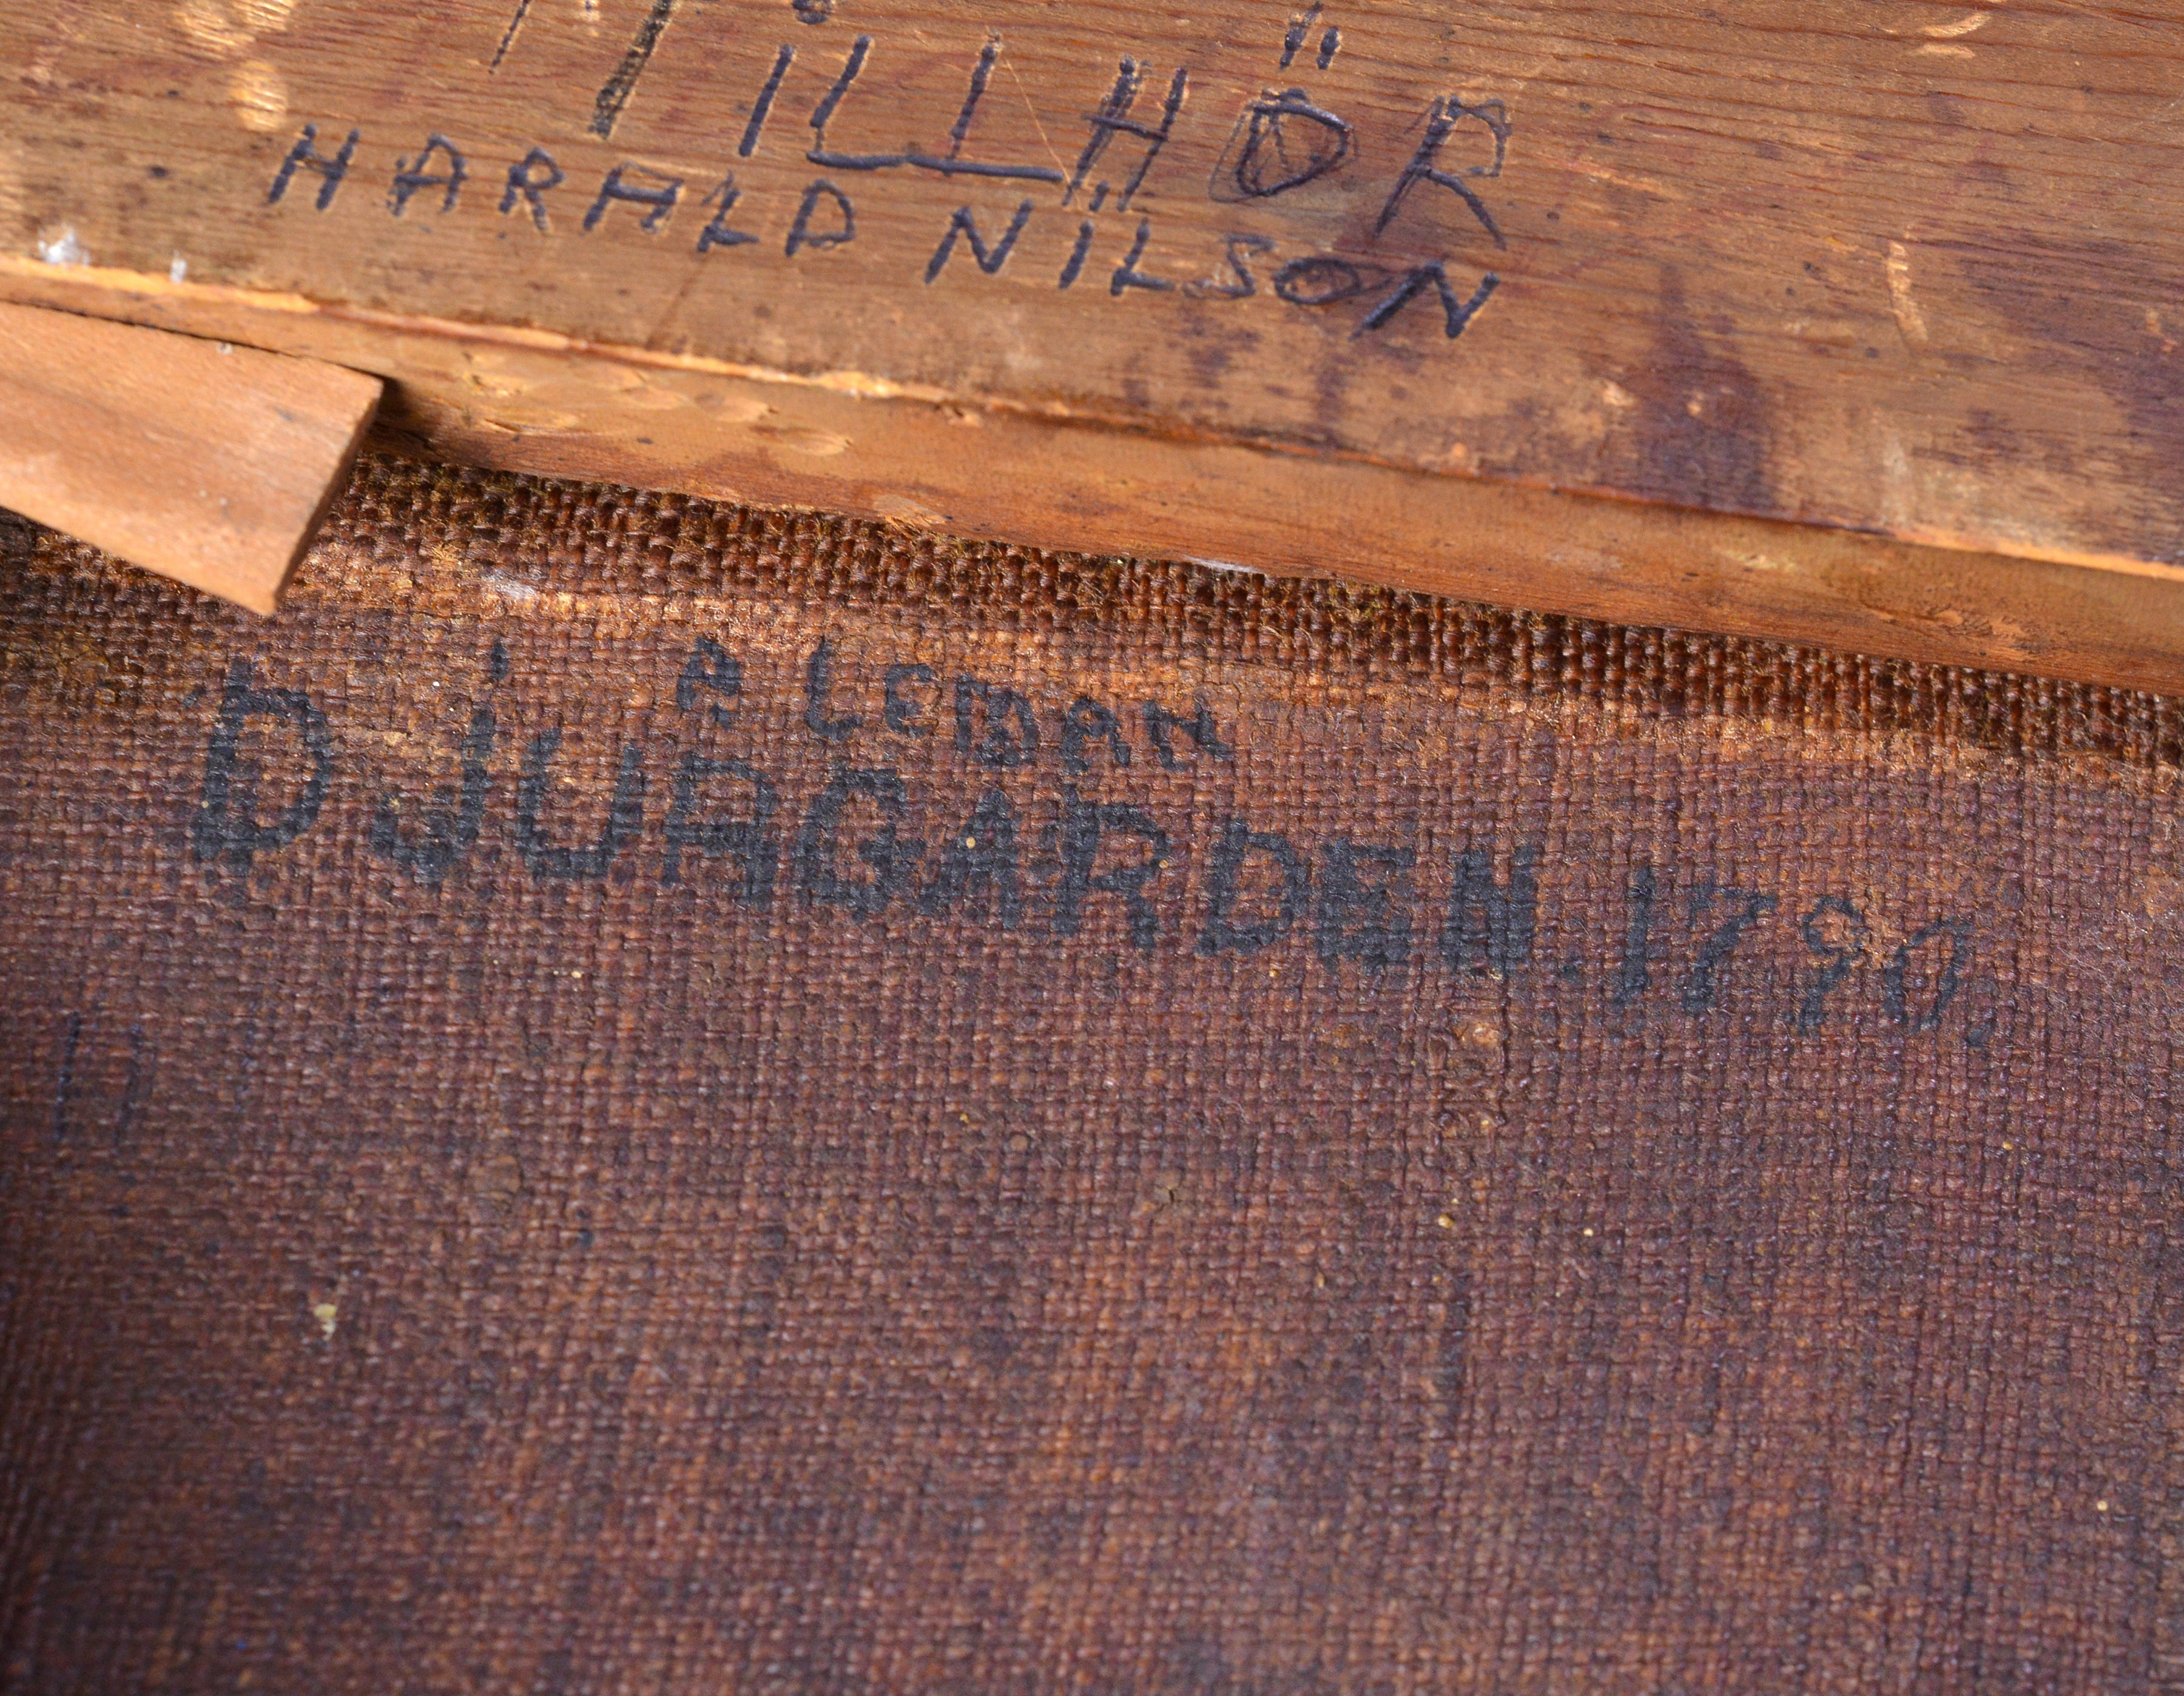 TiLLHÖR
HARALD NILSON
A LEMAN
DJURGARDEN. 1790.